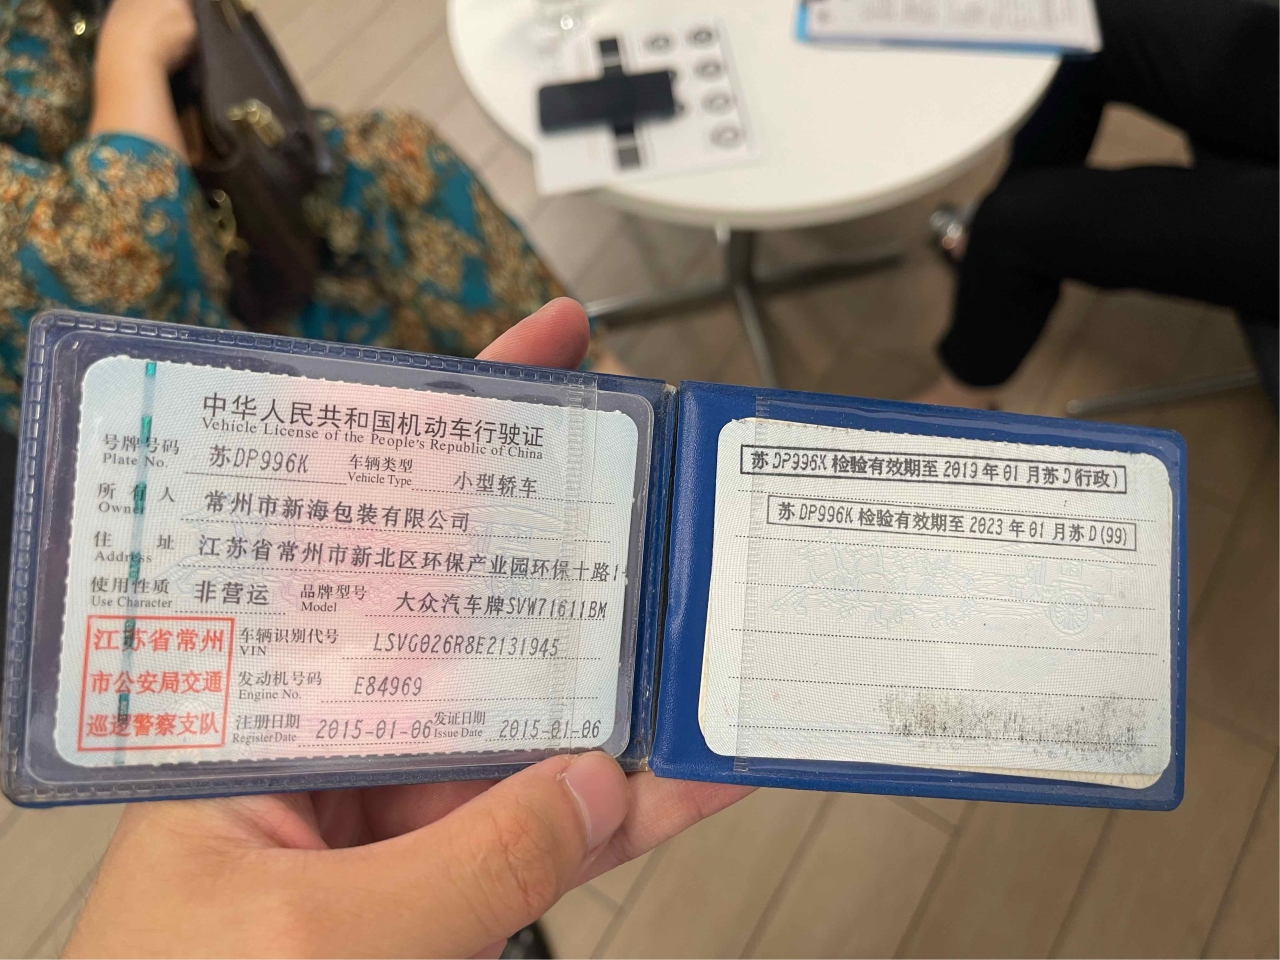 中华人民共和国机动车行驶证
Vehicle License of the People's Republic of China
号牌号码 苏DP996K 车辆类型 小型轿车
Plate No. Vehicle Type
所有人 常州市新海包装有限公司
Owner
住址 江苏省常州市新北区环保产业园环保十路
Address
使用性质 非营运 品牌型号 大众汽车牌SVW71611BM
Use Character Model
车辆识别代号 LSVG026R8E2131945
VIN
发动机号码 E84969
Engine No.
注册日期 2015-01-06 发证日期 2015-01-06
Register Date Issue Date
江苏省常州
市公安局交通
巡逻警察支队
苏DP996K 检验有效期至 2019 年 01 月苏D(行政)
苏DP996K 检验有效期至 2023 年 01 月苏D(99)